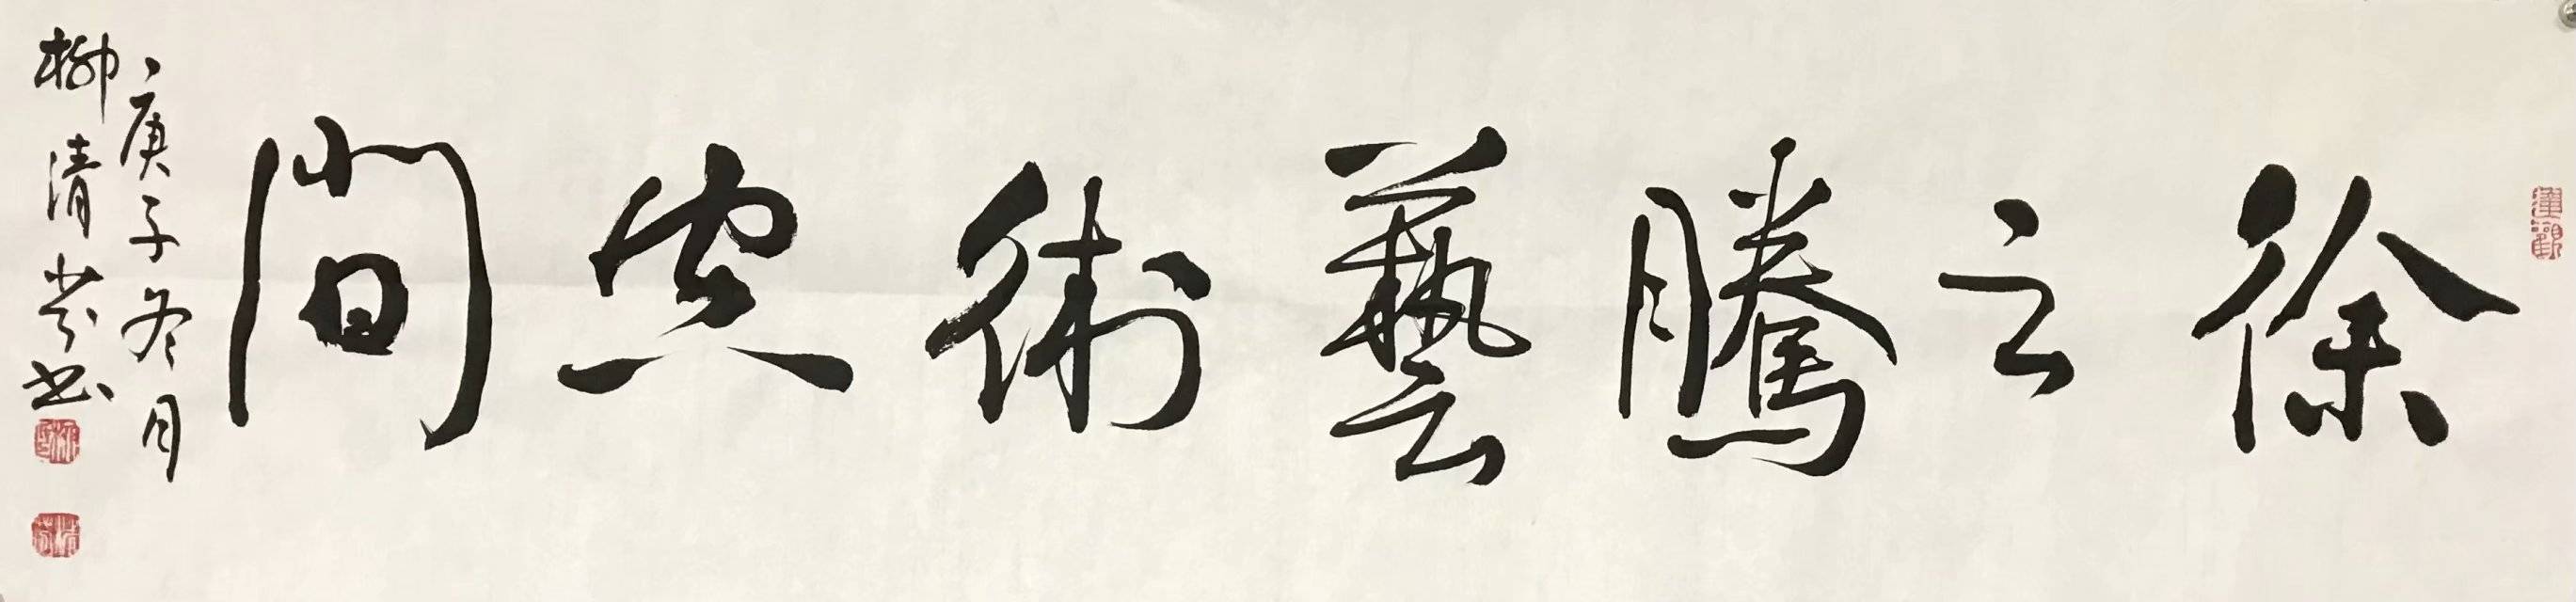 徐云騰藝術空間
庚子冬月
柳清芬书